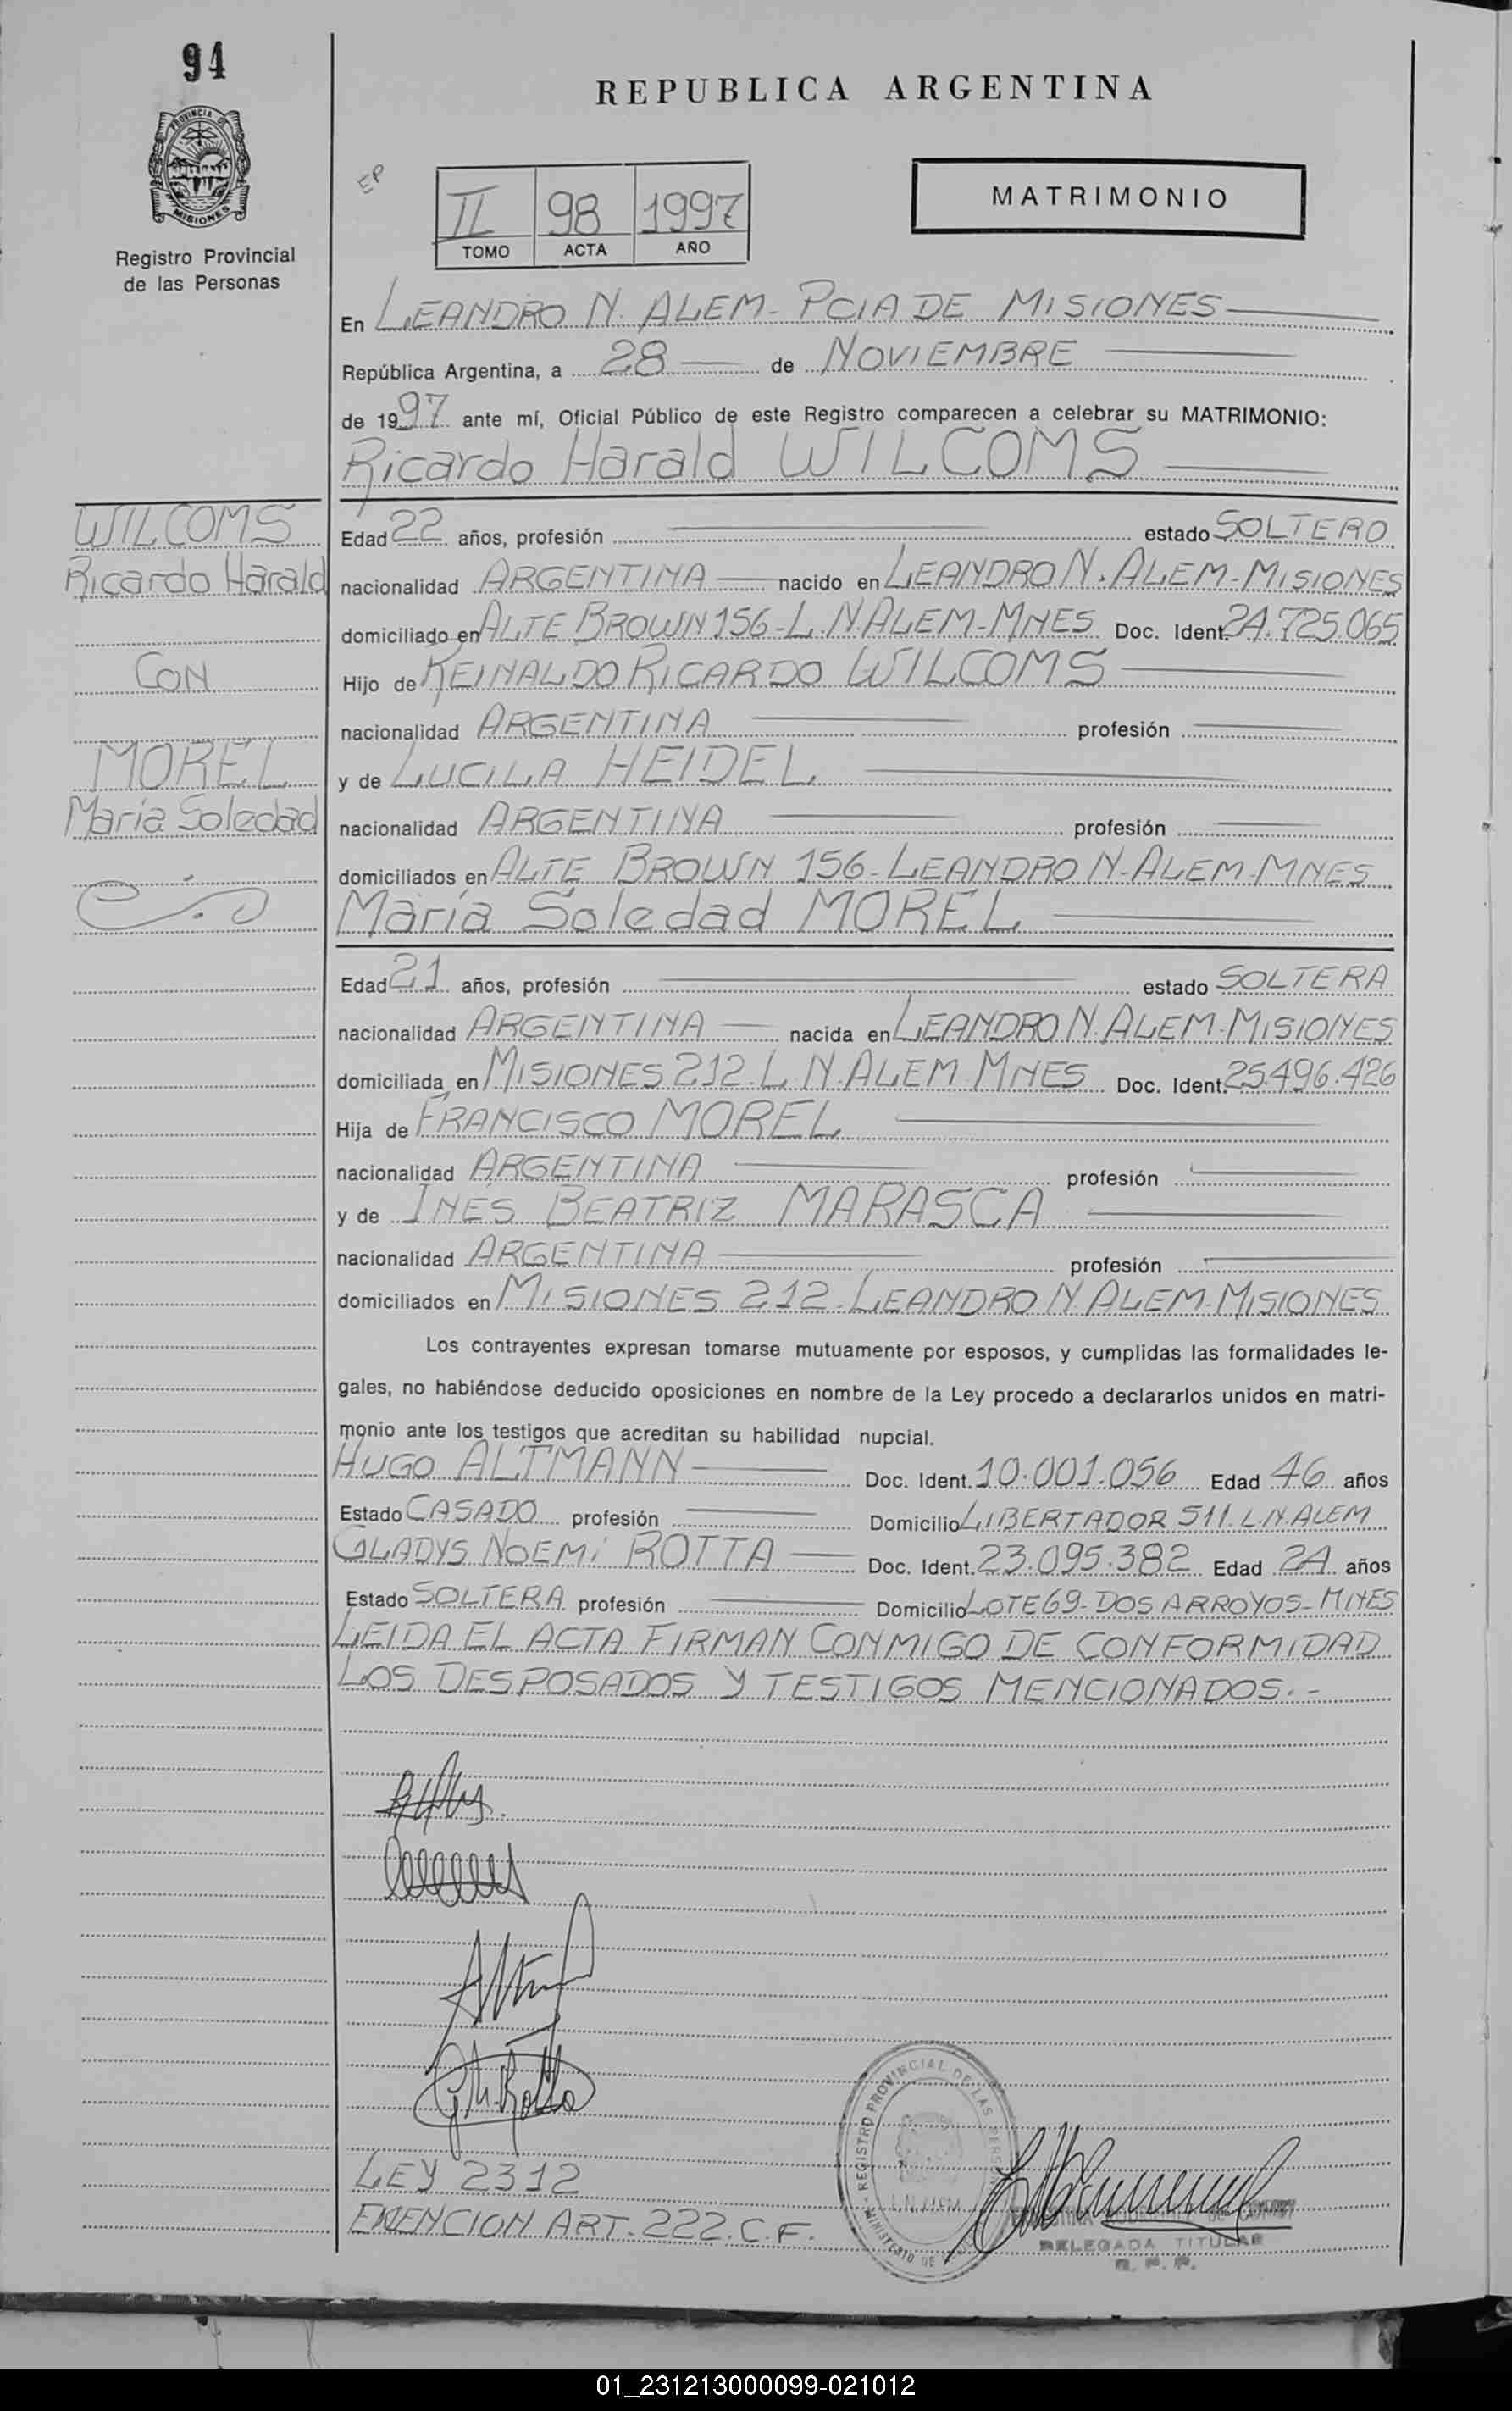 94
REPUBLICA ARGENTINA
PROVINCIA DE
MISIONES
EP
II 98 1997
TOMO ACTA AÑO
MATRIMONIO
Registro Provincial
de las Personas
En LEANDRO N. ALEM - PCIA DE MISIONES
República Argentina, a 28 de NOVIEMBRE
de 1997 ante mí, Oficial Público de este Registro comparecen a celebrar su MATRIMONIO:
Ricardo Harald WILCOMS
WILCOMS
Ricardo Harald
CON
MOREL
María Soledad
Edad 22 años, profesión estado SOLTERO
nacionalidad ARGENTINA nacido en LEANDRO N. ALEM - MISIONES
domiciliado en ALTE BROWN 156 - L.N. ALEM - MNES Doc. Ident. 24.725.065
Hijo de REINALDO RICARDO WILCOMS
nacionalidad ARGENTINA profesión
y de LUCILA HEIDEL
nacionalidad ARGENTINA profesión
domiciliados en ALTE BROWN 156 - LEANDRO N. ALEM - MNES
María Soledad MOREL
Edad 21 años, profesión estado SOLTERA
nacionalidad ARGENTINA nacida en LEANDRO N. ALEM - MISIONES
domiciliada en MISIONES 212 - L.N. ALEM MNES Doc. Ident. 25.496.426
Hija de FRANCISCO MOREL
nacionalidad ARGENTINA profesión
y de INÉS BEATRIZ MARASCA
nacionalidad ARGENTINA profesión
domiciliados en MISIONES 212 - LEANDRO N. ALEM - MISIONES
Los contrayentes expresan tomarse mutuamente por esposos, y cumplidas las formalidades le-
gales, no habiéndose deducido oposiciones en nombre de la Ley procedo a declararlos unidos en matri-
monio ante los testigos que acreditan su habilidad nupcial.
HUGO ALTMANN Doc. Ident. 10.001.056 Edad 46 años
Estado CASADO profesión Domicilio LIBERTADOR 511. L.N. ALEM
GLADYS NOEMí ROTTA Doc. Ident. 23.095.382 Edad 24 años
Estado SOLTERA profesión Domicilio LOTE 69 - DOS ARROYOS - MNES
LEIDA EL ACTA FIRMAN CONMIGO DE CONFORMIDAD
LOS DESPOSADOS Y TESTIGOS MENCIONADOS.-
G.N. Rotta
LEY 2312
EXENCION ART. 222. C.F.
REGISTRO PROVINCIAL DE LAS PERSONAS
MINISTERIO DE
L.N. ALEM
DELEGADA TITULAR
R. P. P.
01_231213000099-021012